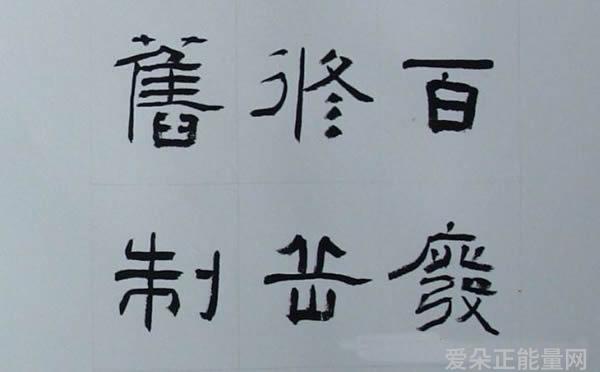 百廢
修岳
舊制
爱朵正能量网